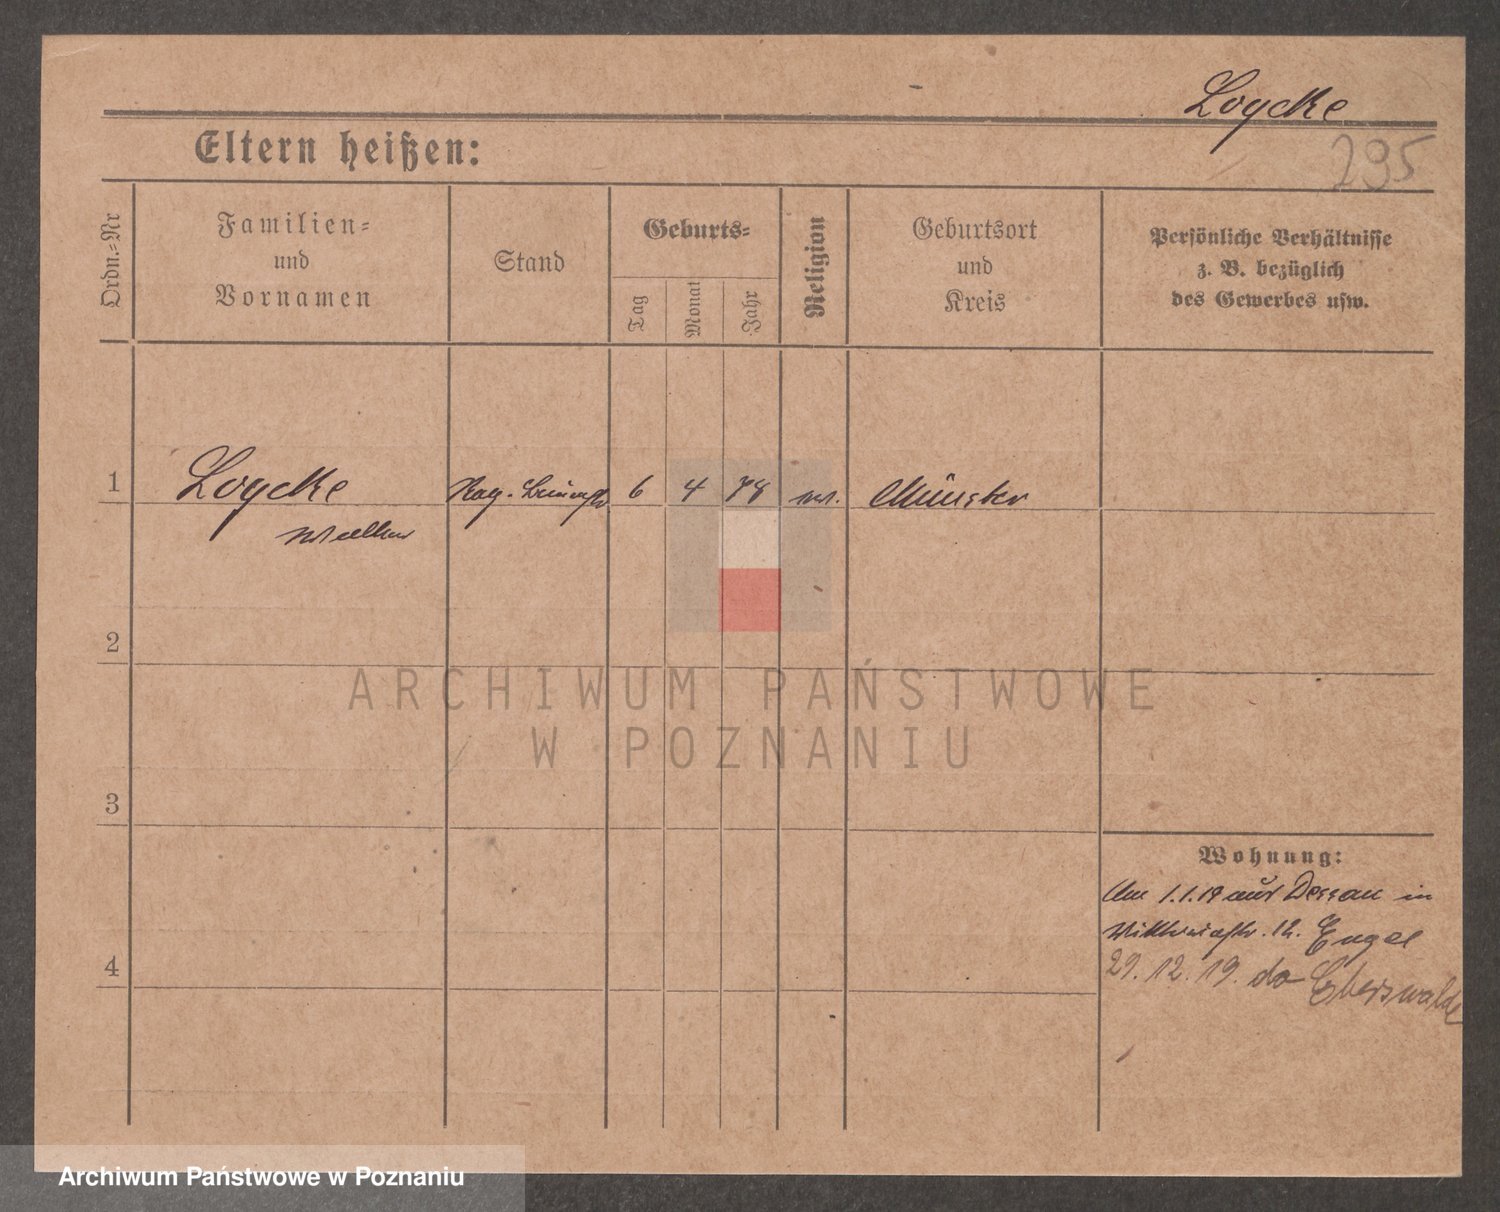 Loycke
295
Eltern heißen:
Ordn.=Nr
Familien=
und
Vornamen
Stand
Geburts=
Tag
Monat
Jahr
Religion
Geburtsort
und
Kreis
Persönliche Verhältnisse
z. B. bezüglich
des Gewerbes usw.
1 Loycke Reg. 6 4 78 Münster
2
ARCHIWUM PAŃSTWOWE
W POZNANIU
3
Wohnung:
1.1.19 aus Dessau in
12. Engel
29. 12. 19. do Eberswalde
4
Archiwum Państwowe w Poznaniu